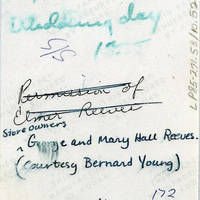 Wedding day
5/5
Permission of
Elmer Reeves
Store owners
^George and Mary Hall Reeves.
(Courtesy Bernard Young)
172